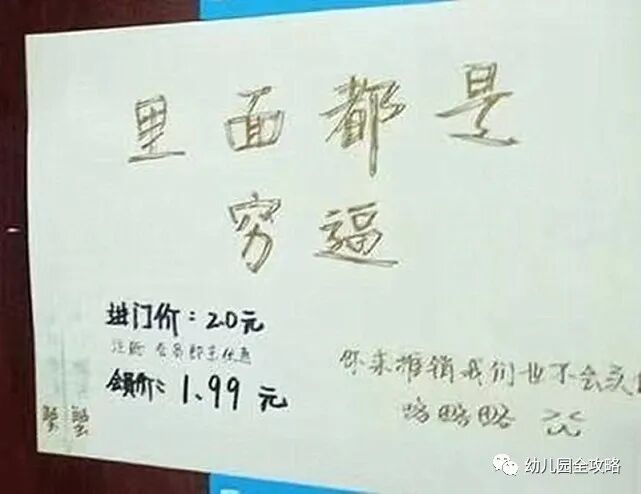 里面都是
穷逼
进门价：20元
注册会员即享优惠
会员价：1.99元
你来推销我们也不会买
略略略
幼儿园全攻略